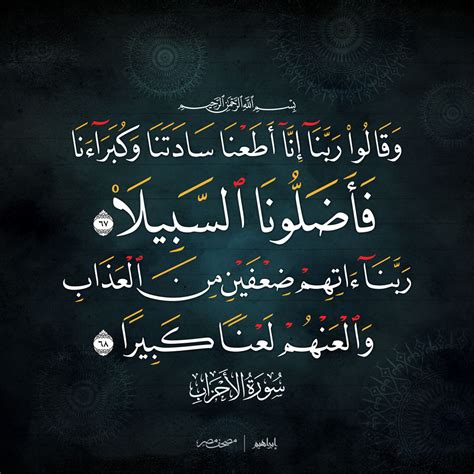 بِسْمِ اللَّهِ الرَّحْمَٰنِ الرَّحِيمِ
وَقَالُوا۟ رَبَّنَآ إِنَّآ أَطَعْنَا سَادَتَنَا وَكُبَرَآءَنَا
فَأَضَلُّونَا ٱلسَّبِيلَا۠ ٦٧
رَبَّنَآ ءَاتِهِمْ ضِعْفَيْنِ مِنَ ٱلْعَذَابِ
وَٱلْعَنْهُمْ لَعْنًا كَبِيرًا ٦٨
سُورَةُ الأَحْزَابِ
إبراهيم | مصحف مصر